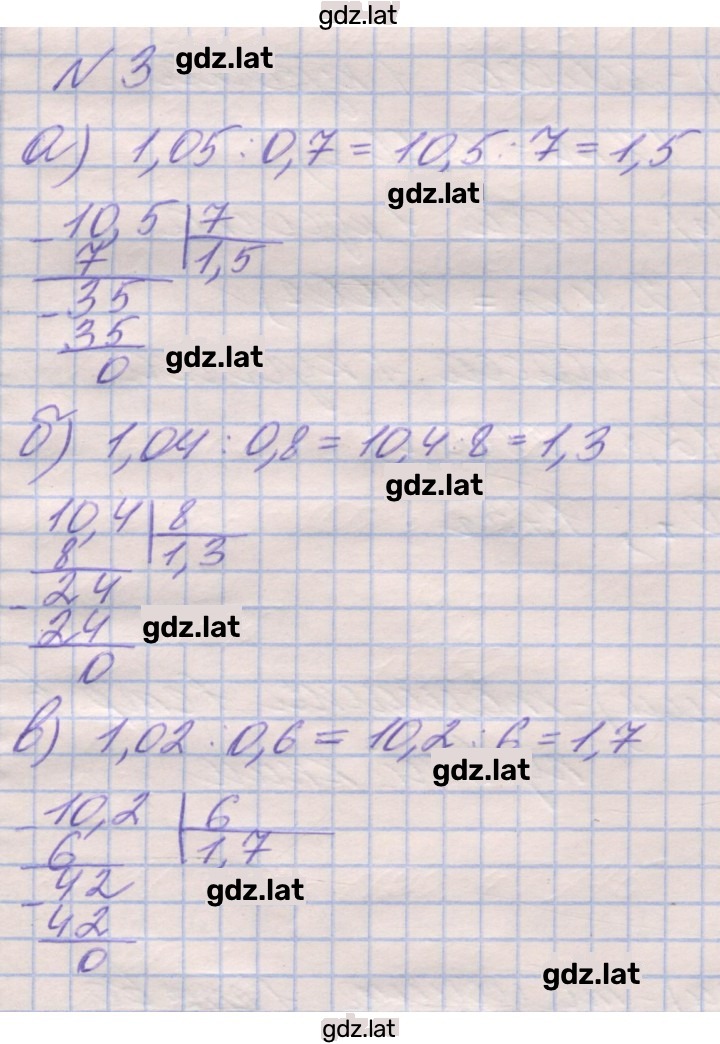 gdz.lat
N 3 gdz.lat
а) 1,05 : 0,7 = 10,5 : 7 = 1,5
gdz.lat
- 10,5 | 7
7 1,5
- 35
35
gdz.lat
0
б) 1,04 : 0,8 = 10,4 : 8 = 1,3
gdz.lat
10,4 | 8
8 1,3
- 24
24
gdz.lat
0
в) 1,02 : 0,6 = 10,2 : 6 = 1,7
gdz.lat
- 10,2 | 6
6 1,7
- 42
gdz.lat
42
0
gdz.lat
gdz.lat